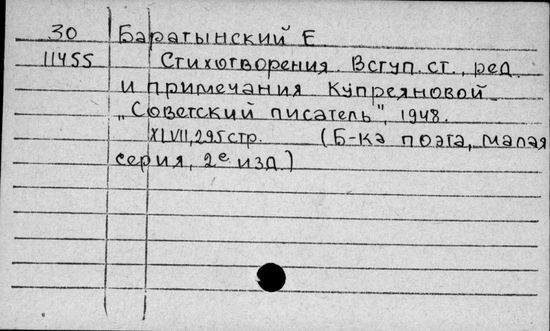 30 Баратынский Е
11455 Стихотворения Вступ. ст., ред.
и примечания Купреяновой.
„Советский писатель", 1948.
XLVII, 295 стр. (Б-ка поэта, малая
серия, 2е изд.)